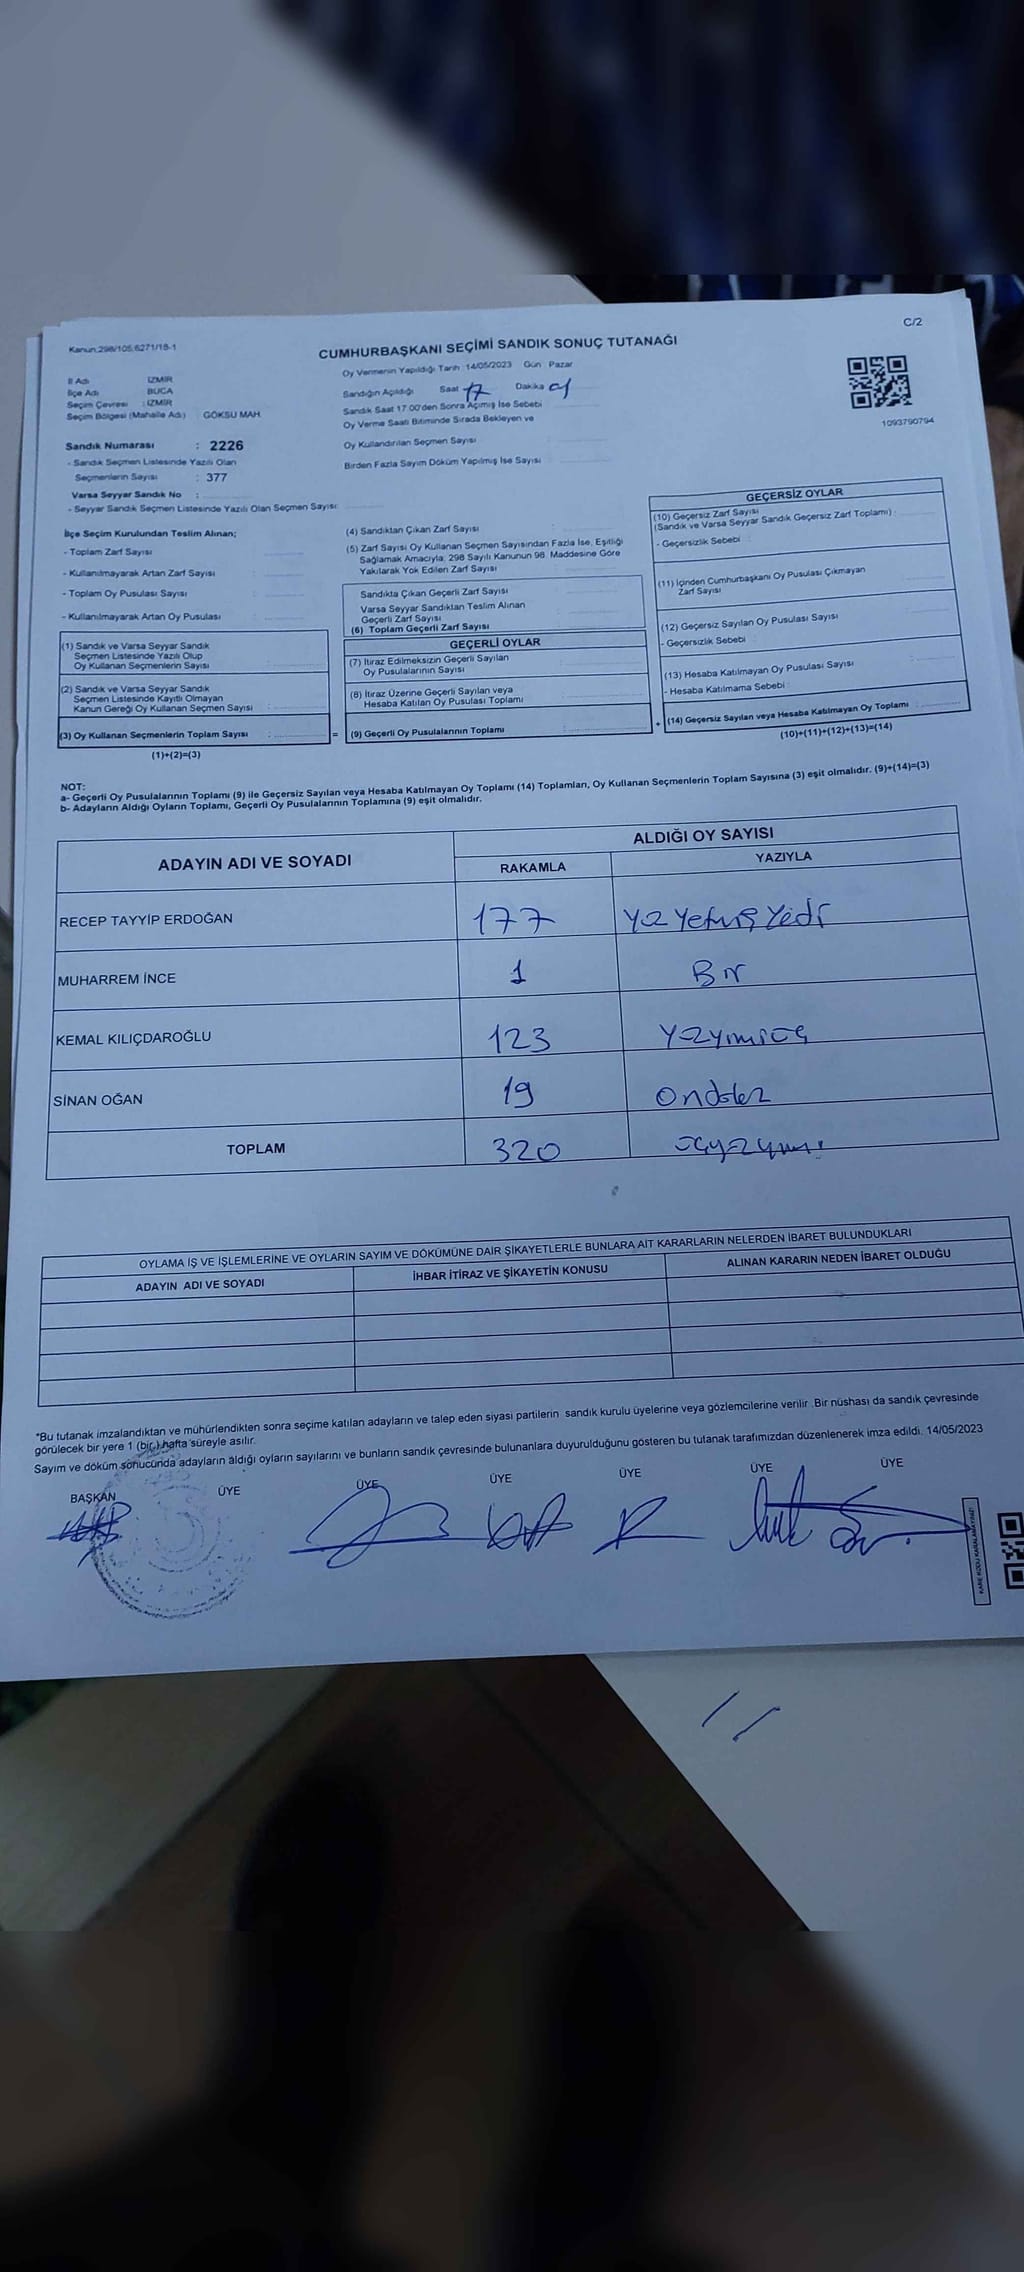 C/2
Kanun;298/105;6271/18-1
CUMHURBAŞKANI SEÇİMİ SANDIK SONUÇ TUTANAĞI
Oy Vermenin Yapıldığı Tarih :14/05/2023 Gün : Pazar
İl Adı : İZMİR
İlçe Adı : BUCA
Seçim Çevresi : İZMİR
Seçim Bölgesi (Mahalle Adı) : GÖKSU MAH.
Sandığın Açıldığı Saat 17 Dakika 01
Sandık Saat 17.00'den Sonra Açımış İse Sebebi
Oy Verme Saati Bitiminde Sırada Bekleyen ve
Oy Kullandırılan Seçmen Sayısı :
Birden Fazla Sayım Döküm Yapılmış İse Sayısı :
1093790794
Sandık Numarası : 2226
- Sandık Seçmen Listesinde Yazılı Olan
Seçmenlerin Sayısı : 377
Varsa Seyyar Sandık No :
- Seyyar Sandık Seçmen Listesinde Yazılı Olan Seçmen Sayısı:
İlçe Seçim Kurulundan Teslim Alınan;
- Toplam Zarf Sayısı :
- Kullanılmayarak Artan Zarf Sayısı :
- Toplam Oy Pusulası Sayısı :
- Kullanılmayarak Artan Oy Pusulası :
(1) Sandık ve Varsa Seyyar Sandık
Seçmen Listesinde Yazılı Olup
Oy Kullanan Seçmenlerin Sayısı :
(2) Sandık ve Varsa Seyyar Sandık
Seçmen Listesinde Kayıtlı Olmayan
Kanun Gereği Oy Kullanan Seçmen Sayısı :
(3) Oy Kullanan Seçmenlerin Toplam Sayısı :
(1)+(2)=(3)
=
(4) Sandıktan Çıkan Zarf Sayısı :
(5) Zarf Sayısı Oy Kullanan Seçmen Sayısından Fazla İse, Eşitliği
Sağlamak Amacıyla; 298 Sayılı Kanunun 98. Maddesine Göre
Yakılarak Yok Edilen Zarf Sayısı :
Sandıkta Çıkan Geçerli Zarf Sayısı :
Varsa Seyyar Sandıktan Teslim Alınan
Geçerli Zarf Sayısı :
(6) Toplam Geçerli Zarf Sayısı :
GEÇERLİ OYLAR
(7) İtiraz Edilmeksizin Geçerli Sayılan
Oy Pusulalarının Sayısı :
(8) İtiraz Üzerine Geçerli Sayılan veya
Hesaba Katılan Oy Pusulası Toplamı :
(9) Geçerli Oy Pusulalarının Toplamı :
+
GEÇERSİZ OYLAR
(10) Geçersiz Zarf Sayısı
(Sandık ve Varsa Seyyar Sandık Geçersiz Zarf Toplamı) :
- Geçersizlik Sebebi :
(11) İçinden Cumhurbaşkanı Oy Pusulası Çıkmayan
Zarf Sayısı :
(12) Geçersiz Sayılan Oy Pusulası Sayısı :
- Geçersizlik Sebebi :
(13) Hesaba Katılmayan Oy Pusulası Sayısı :
- Hesaba Katılmama Sebebi :
(14) Geçersiz Sayılan veya Hesaba Katılmayan Oy Toplamı :
(10)+(11)+(12)+(13)=(14)
NOT:
a- Geçerli Oy Pusulalarının Toplamı (9) ile Geçersiz Sayılan veya Hesaba Katılmayan Oy Toplamı (14) Toplamları, Oy Kullanan Seçmenlerin Toplam Sayısına (3) eşit olmalıdır. (9)+(14)=(3)
b- Adayların Aldığı Oyların Toplamı, Geçerli Oy Pusulalarının Toplamına (9) eşit olmalıdır.
ADAYIN ADI VE SOYADI
ALDIĞI OY SAYISI
RAKAMLA YAZIYLA
RECEP TAYYİP ERDOĞAN 177 Yüz Yetmiş Yedi
MUHARREM İNCE 1 Bir
KEMAL KILIÇDAROĞLU 123 Yüzyirmiüç
SİNAN OĞAN 19 Ondokuz
TOPLAM 320 üçyüzyirmi
OYLAMA İŞ VE İŞLEMLERİNE VE OYLARIN SAYIM VE DÖKÜMÜNE DAİR ŞİKAYETLERLE BUNLARA AİT KARARLARIN NELERDEN İBARET BULUNDUKLARI
ADAYIN ADI VE SOYADI İHBAR İTİRAZ VE ŞİKAYETİN KONUSU ALINAN KARARIN NEDEN İBARET OLDUĞU
*Bu tutanak imzalandıktan ve mühürlendikten sonra seçime katılan adayların ve talep eden siyasi partilerin sandık kurulu üyelerine veya gözlemcilerine verilir. Bir nüshası da sandık çevresinde
görülecek bir yere 1 (bir ) hafta süreyle asılır.
Sayım ve döküm sonucunda adayların aldığı oyların sayılarını ve bunların sandık çevresinde bulunanlara duyurulduğunu gösteren bu tutanak tarafımızdan düzenlenerek imza edildi. 14/05/2023
BAŞKAN ÜYE ÜYE ÜYE ÜYE ÜYE ÜYE
KARE KODU KARALAMAYINIZ!